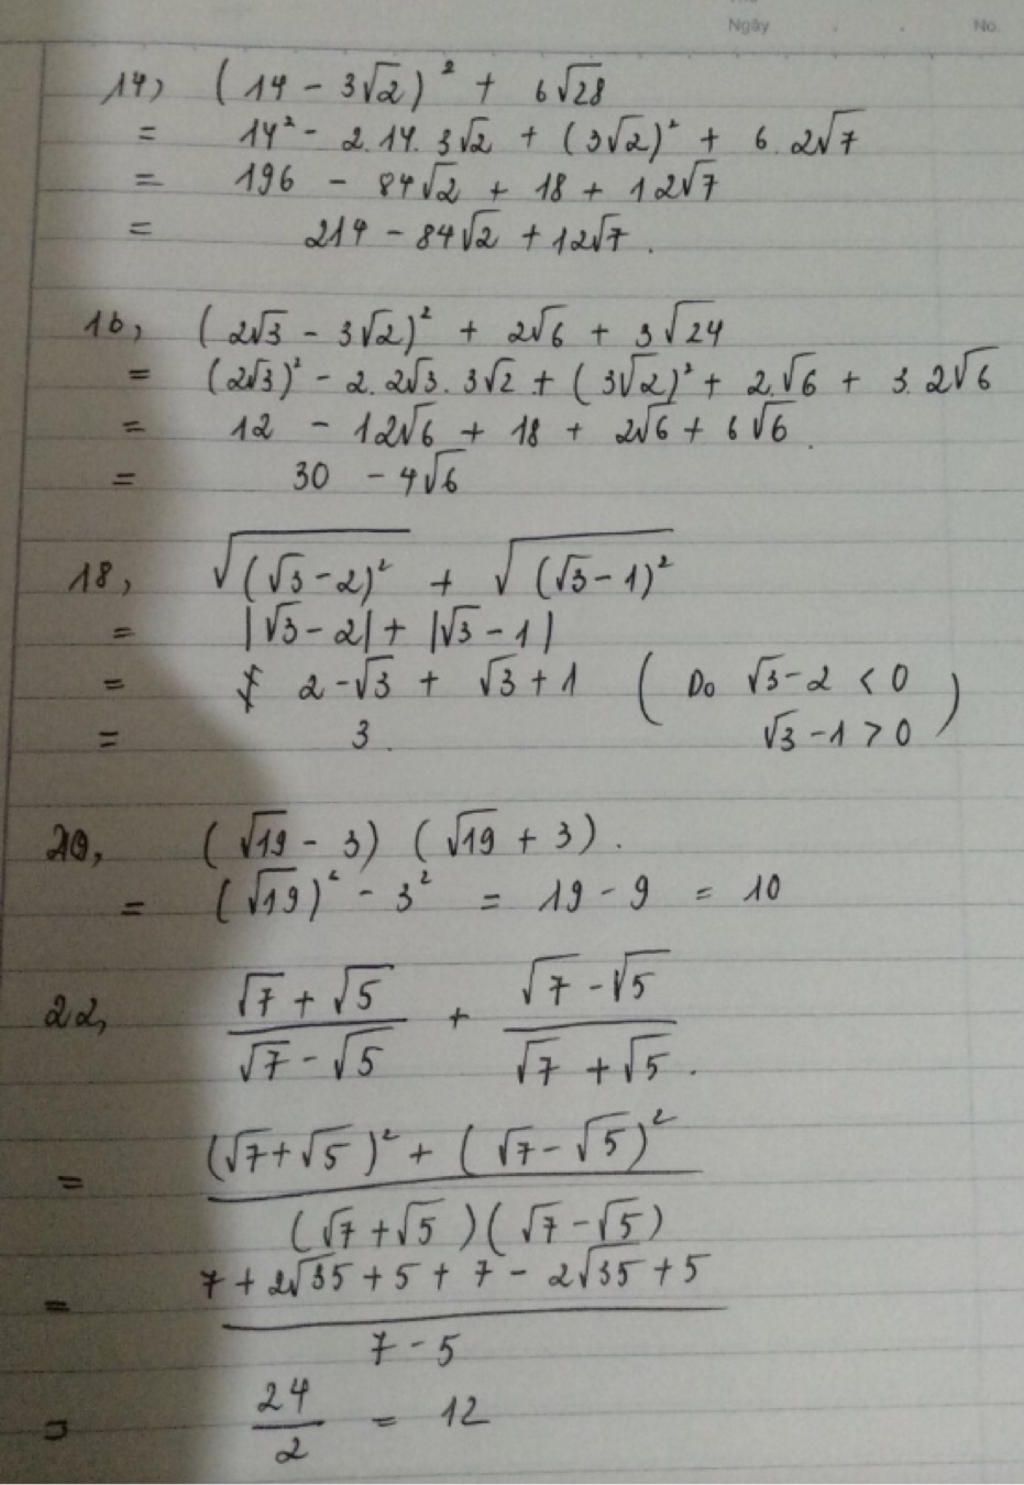 Ngày . . No.
14, (14 - 3√2)² + 6√28
= 14² - 2.14.3√2 + (3√2)² + 6.2√7
= 196 - 84√2 + 18 + 12√7
= 214 - 84√2 + 12√7.
16, (2√3 - 3√2)² + 2√6 + 3√24
= (2√3)² - 2.2√3.3√2 + (3√2)² + 2.√6 + 3.2√6
= 12 - 12√6 + 18 + 2√6 + 6√6.
= 30 - 4√6
18, √(√3-2)² + √(√3-1)²
= |√3-2| + |√3-1|
= 2-√3 + √3+1 (Do √3-2 < 0
= 3. √3-1 > 0)
20, (√19 - 3) (√19 + 3).
= (√19)² - 3² = 19 - 9 = 10
22, (√7 + √5)/(√7 - √5) + (√7 - √5)/(√7 + √5).
= ((√7+√5)² + (√7-√5)²)/((√7+√5)(√7-√5))
= (7 + 2√35 + 5 + 7 - 2√35 + 5)/(7 - 5)
= 24/2 = 12